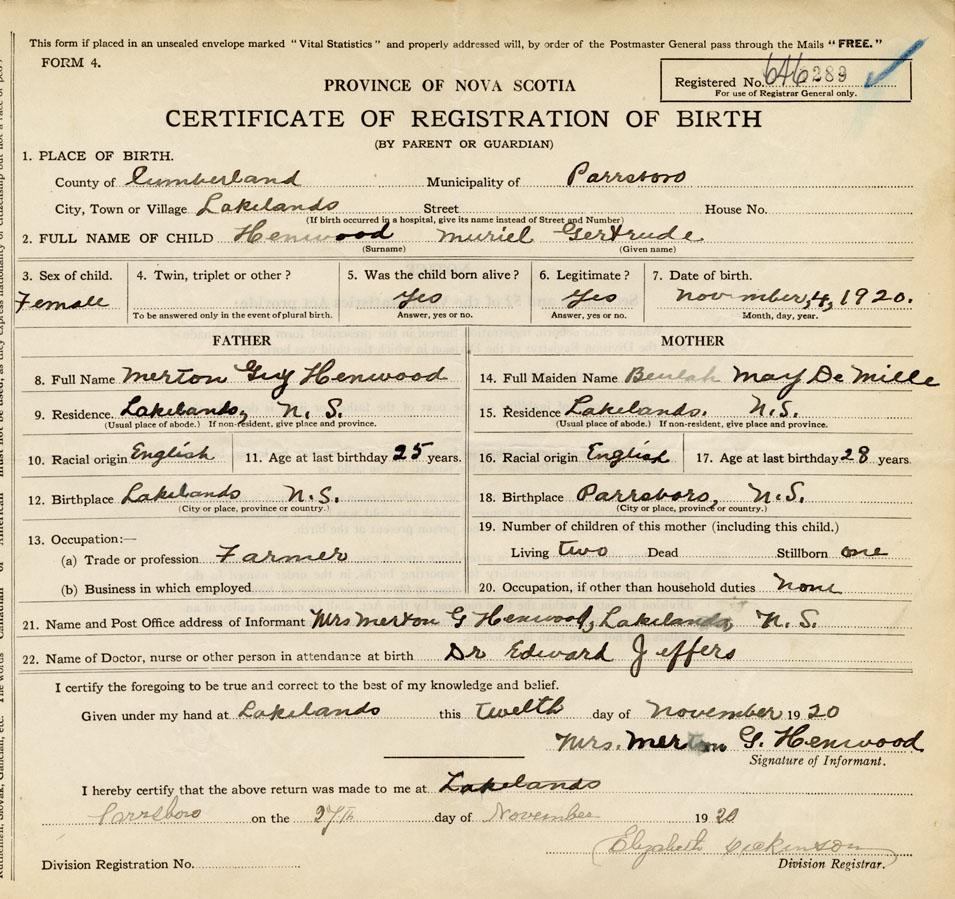 This form if placed in an unsealed envelope marked "Vital Statistics" and properly addressed will, by order of the Postmaster General pass through the Mails "FREE."
FORM 4.
Registered No. 646289
For use of Registrar General only.
PROVINCE OF NOVA SCOTIA
CERTIFICATE OF REGISTRATION OF BIRTH
(BY PARENT OR GUARDIAN)
1. PLACE OF BIRTH.
County of Cumberland Municipality of Parrsboro
City, Town or Village Lakelands Street House No.
(If birth occurred in a hospital, give its name instead of Street and Number)
2. FULL NAME OF CHILD Henwood Muriel Gertrude
(Surname) (Given name)
3. Sex of child. 4. Twin, triplet or other? 5. Was the child born alive? 6. Legitimate? 7. Date of birth.
Female Yes Yes November, 4, 1920.
To be answered only in the event of plural birth. Answer, yes or no. Answer, yes or no. Month, day, year.
FATHER MOTHER
8. Full Name Merton Guy Henwood 14. Full Maiden Name Beulah May De Mille
9. Residence. Lakelands, N. S. 15. Residence Lakelands. N.S.
(Usual place of abode.) If non-resident, give place and province. (Usual place of abode.) If non-resident, give place and province.
10. Racial origin English 11. Age at last birthday 25 years. 16. Racial origin English 17. Age at last birthday 28 years.
12. Birthplace Lakelands N.S. 18. Birthplace Parrsboro, N.S.
(City or place, province or country.) (City or place, province or country.)
13. Occupation:— 19. Number of children of this mother (including this child.)
(a) Trade or profession Farmer Living two Dead Stillborn one
(b) Business in which employed 20. Occupation, if other than household duties None
21. Name and Post Office address of Informant Mrs Merton G Henwood, Lakelands, N. S.
22. Name of Doctor, nurse or other person in attendance at birth Dr Edward Jeffers
I certify the foregoing to be true and correct to the best of my knowledge and belief.
Given under my hand at Lakelands this twelth day of November 1920
Mrs. Merton G. Henwood
Signature of Informant.
I hereby certify that the above return was made to me at Lakelands
Parrsboro on the 27th day of November 1920
Elizabeth Dickinson
Division Registration No. Division Registrar.